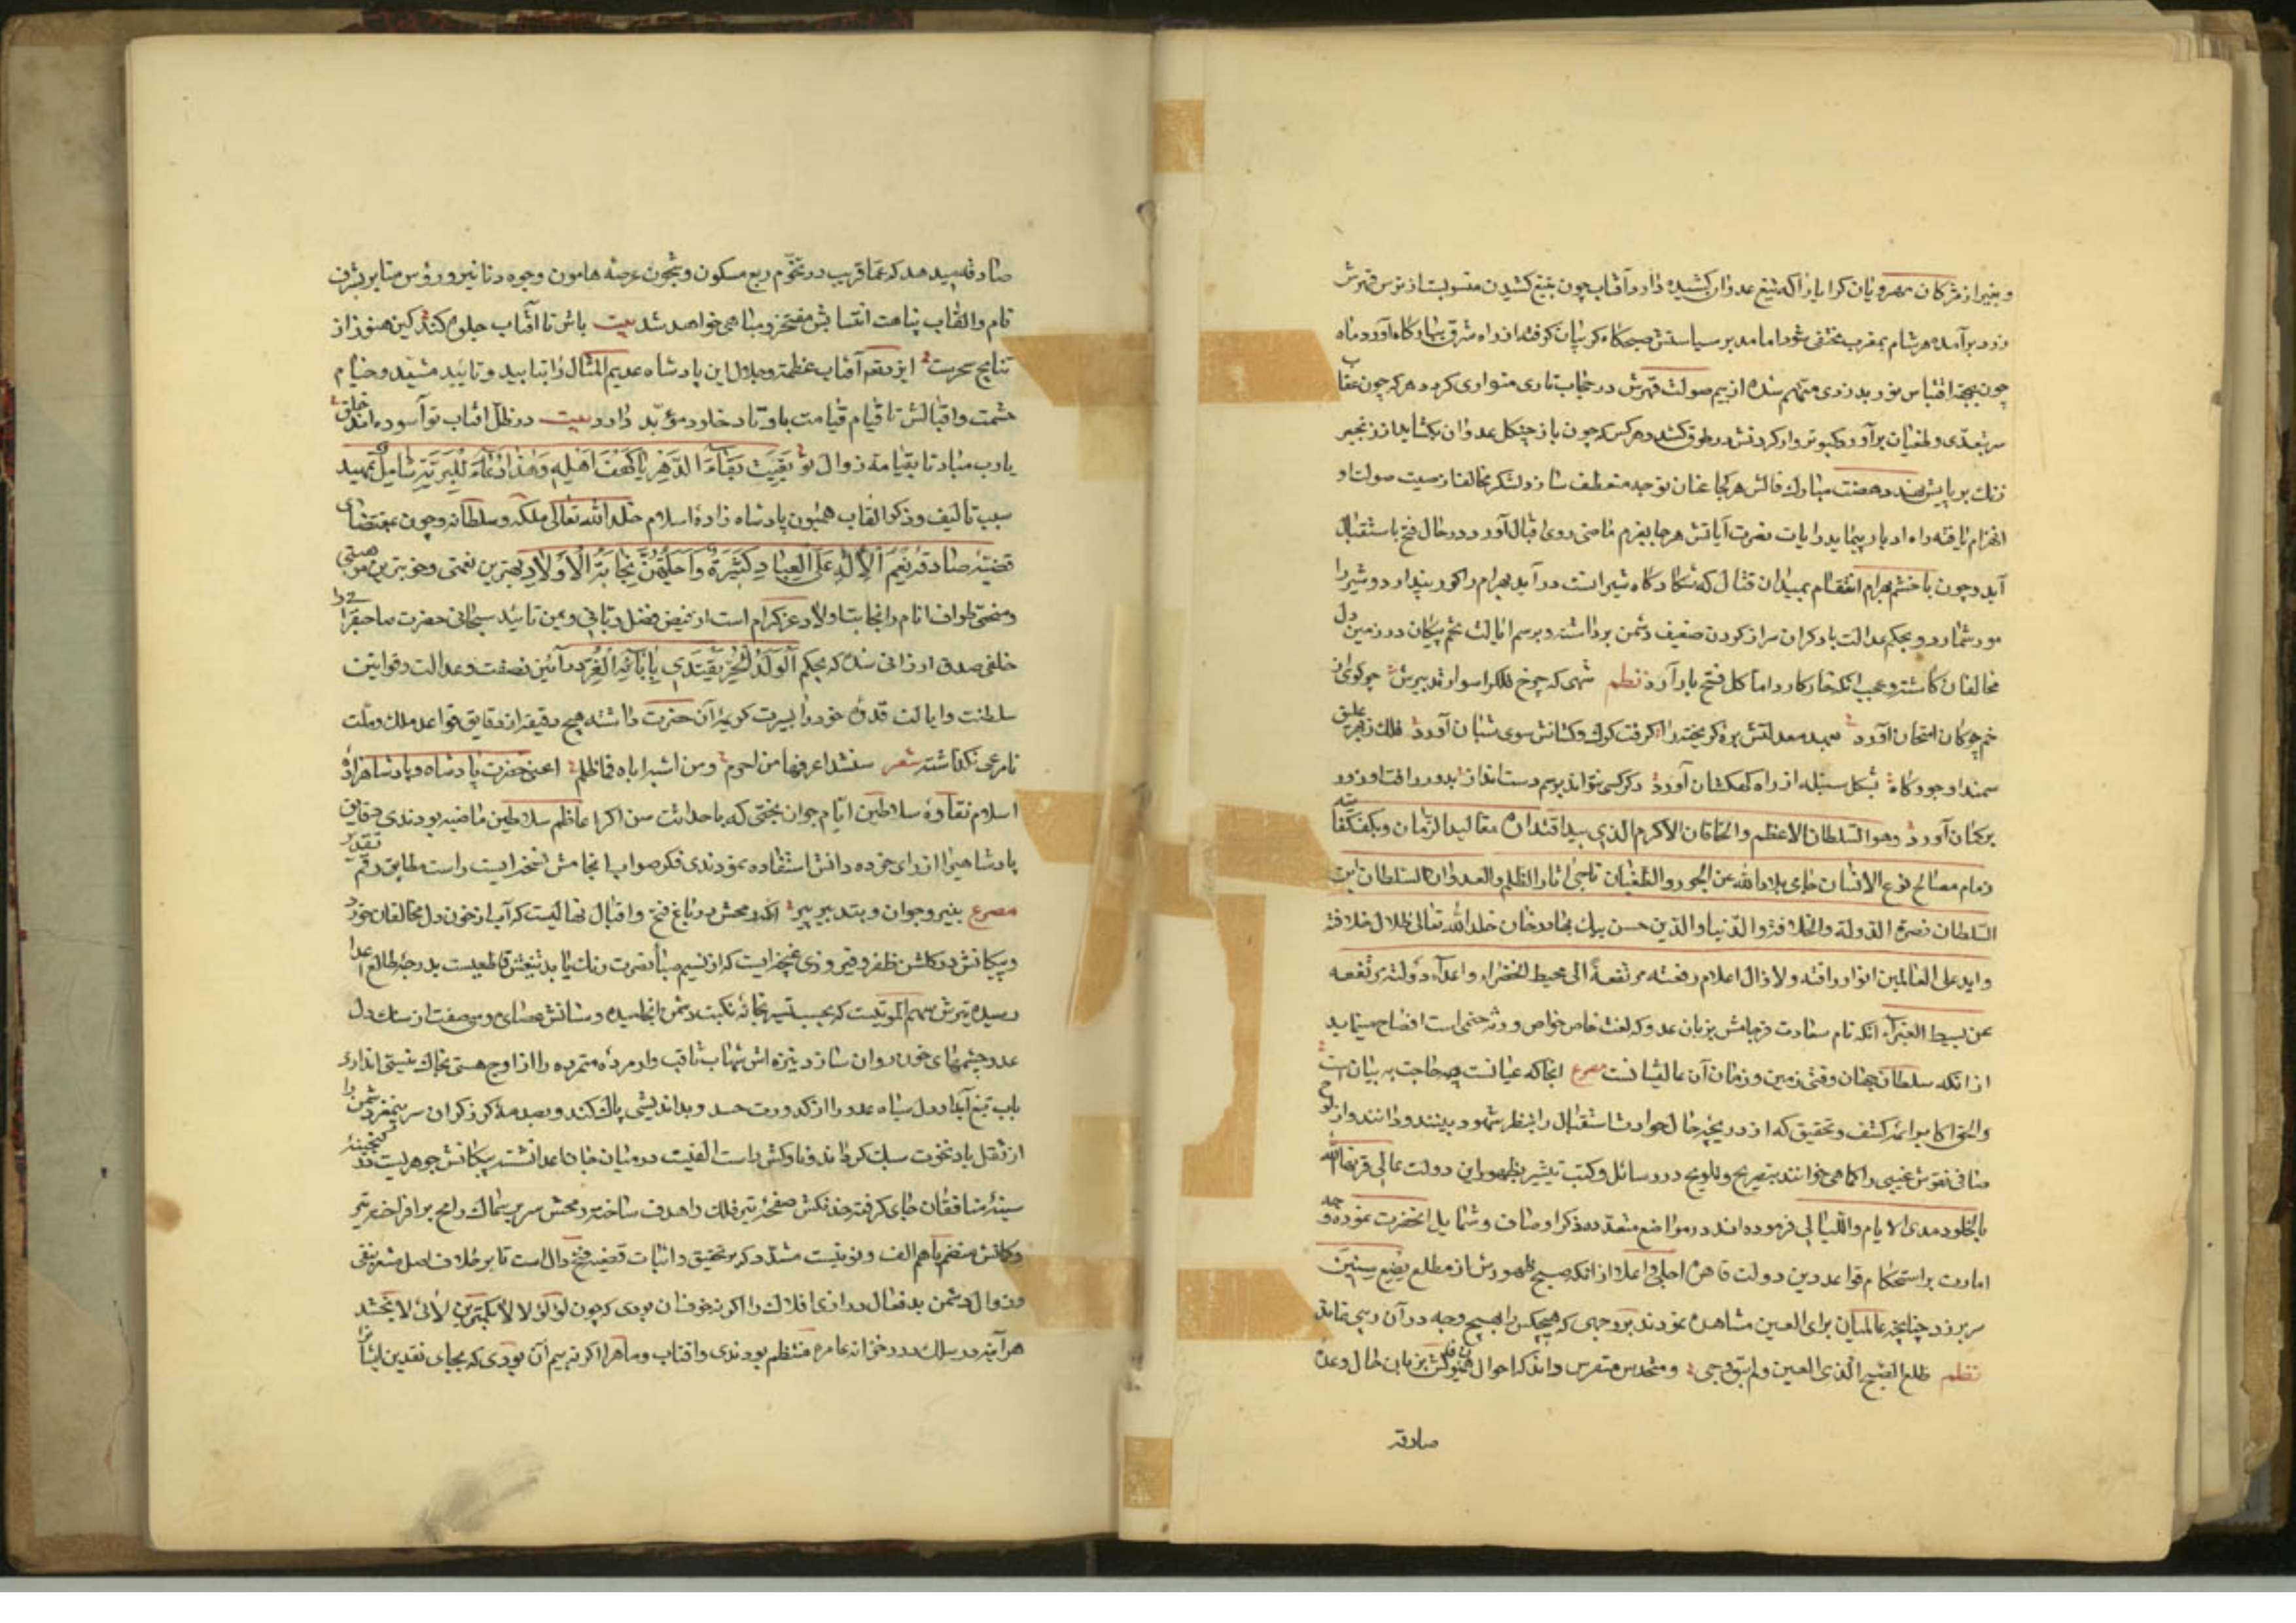 و بغیر از مژکان مهرویان کرا یارا که تیغ عدوان کشیده دارد و آفتاب چون بتیغ کشیدن منسوبست از ترس قهرش
زرد برآمده هر شام بمغرب مختفی شود اما مدبر سیاستش صبحکاه کریبان کرفته از راه شرق ببارکاه آورد و ماه
چون بجهة اقتباس نور بدزدی متهم شده از بیم صولت قهرش در حجاب تاری متواری کردد هر که چون عقاب
سر بتعدی و طغیان برآورد کبوتروار کردنش در طوق کشد و هر کس که چون باز چنکل عدوان بکشاید از زنجیر
زنک بر پایش نهد نهضت مبارک فالش هر کجا عنان توجه منعطف سازد لشکر مخالف از صیت صولت او
انهزام یافته راه ادبار پیماید رایات نصرت آیاتش هر جا بعزم ماضی روی اقبال آورد در حال فتح باستقبال
آید و چون با خشم بهرام انتقام بمیدان قتال که شکارکاه شیرانست در آید بهرام را کور پندارد و شیر را
مور شمارد و بحکم عدالت بار کران سر از کردن ضعیف دشمن برداشته و برسم ایالت تخم پیکان در زمین دل
مخالفان کاشته و عجب آنکه خار کارد اما کل فتح بار آرد نظم شهی که چرخ فلک را سوار تدبیرش چو کوی در
خم چوکان امتحان آورد بعهد معدلتش بره کریخته را کرفت کرک و کشانش سوی شبان آورد فلک ز بهر علیق
سمند او جو و کاه بشکل سنبله از راه کهکشان آورد دکر کسی نتواند برسم دست انداز بدور رافت او زور
بر کمان آورد وهو السلطان الاعظم والخاقان الاکرم الذی بید اقتداره مقالید الزمان وبکف کفایته
زمام مصالح نوع الانسان حامی بلاد الله عن الجور والطغیان ماحی اثار الظلم والعدوان السلطان ابن
السلطان نصرة الدولة والخلافة والدنیا والدین حسن بیک بهادرخان خلد الله تعالی ظلال خلافته
وابد علی العالمین انوار رافته ولازال اعلام رفعته مرتفعة الی محیط الخضراء واعداء دولته مرتفعه
عن بسیط الغبراء آنکه نام سعادت فرجامش بزبان عدو که لغت خاص خواص و ورثه حتمی است افضاح مینماید
از آنکه سلطان جهان وقتی زمین و زمان آن عالیشانست مصرع آنجا که عیانست چه حاجت به بیان است
و التواکابر ائمه کشف و تحقیق که از دریچه حال حوادث استقبال را بنظر شهود بینند و دانند و از لوح
صافی نقوش غیبی را کماهی خوانند بتصریح و تلویح در رسائل و کتب تبشیر بظهور این دولت عالی قرنها الله
بالخلود مدی الایام واللیالی فرموده اند در مواضع متعدده ذکر اوصاف و شمایل آنحضرت نموده و چه
امارت بر استحکام قواعد دین دولت قاهره اجلی و اعلا از آنکه صبح ظهورش از مطلع بضع سنین
سر برزد چنانچه عالمیان برای العین مشاهده نمودند بر وجهی که هیچکس را بهیچ وجه در آن ریبی نماند
نظم طلع الصبح الذی العین ولم یبق دجی و متحدس متفرس داند که احوال همایونش بزبان حال وعدة
صادقه
صادقه میدهد که عما قریب در تخوم ربع مسکون و شجون عرصه هامون وجوه دنانیر و رؤس منابر بشرف
نام و القاب پناهت انتسابش مفتخر و مباهی خواهد شد بیت باش تا آفتاب جلوه کند کین هنوز از
نتایج سحرست ایزد تعالی آفتاب عظمت و جلال این پادشاه عدیم المثال را بتابید و تایید مشید و خیام
حشمت و اقبالش تا قیام قیامت باوتاد خلود مؤبد دارد بیت در ظل افتاب تو آسوده اند خلق
یارب مباد تا بقیامت زوال تو بقیت بقاء الدهر یا کهف اهله وهذا دعاء للبریة شامل تمهید
سبب تالیف و ذکر القاب همیون پادشاه زادهٔ اسلام خلد الله تعالی ملکه وسلطانه و چون بمقتضای
قضیهٔ صادقه نعم الاله علی العباد کثیرة واجلهن نجابة الاولاد بهترین نعمتی و خوبترین موهبتی
و منحتی طوایف انام را نجابت اولاد عز کرام است از فیض فضل ربانی و یمن تائید سبحانی حضرت صاحبقران را
خلفی صدق ارزانی شده که بحکم الولد الحر یقتدی بابائه الغر در آیین نصفت و عدالت و قوانین
سلطنت و ایالت قدوهٔ خود را بسیرت کریمهٔ آن حضرت داشته هیچ دقیقه از دقایق قواعد ملک و ملت
نامرعی نکذاشته شعر سنشنة اعرفها من اخزم ومن اشبه اباه فما ظلم اعنی حضرت پادشاه و پادشاهزادهٔ
اسلام نقاوهٔ سلاطین ایام جوان بختی که با حداثت سن اکر اعاظم سلاطین ماضیه بودندی دقایق
پادشاهی را از رای خرده دانش استفاده نمودندی فکر صواب انجامش نسخه ایست راست مطابق رقم تقدیر
مصرع بنیروجوان و بتدبیر پیر آنکه رمحش در باغ فتح و اقبال نهالیست که آب از خون دل مخالفان خورد
و پیکانش در کلشن ظفر و فیروزی غنچه ایست که از نسیم صبا نصرت رنک یابد تیغش قاطعیست بدرجهٔ طالع اعدا
رسیده تیرش سهم الموتیست که بحسب تسییر بخانهٔ نکبت دشمن انجامیده و سنانش عصای موسی صفت از سنک دل
عدو چشمهای خون روان سازد نیزه اش شهاب ثاقب وار مردهٔ متمرده را از اوج هستی بخاک نیستی اندازد
بآب تیغ آبدار دل سیاه عدو را از کدورت حسد و بد اندیشی پاک کند و بصدمهٔ کرز کران سر بیمغز دشمن را
از ثقل باد نخوت سبک کرداند ناوکش راست الفیست در میان جان اعدا نشسته پیکانش جوهریست در کنجینهٔ
سینهٔ منافقان جای کرفته خدنکش صفحهٔ تیر فلک را هدف ساخته رمحش سر بر سماک رامح برافراخته تیر
و کمانش منضم باهم الف و نونیست مشدد که بر تحقیق و اثبات قضیهٔ فتح دال است تا بر خلاف اصل مشعر بنفی
و زوال دشمن بد فعال دراری افلاک را اکر نه خوف آن بودی که چون لؤلؤ لالا بکمترین لالائی لا بخشد
هر آینه در سلک درر خزانهٔ عامره منتظم بودندی و افتاب و ماه را اکر نه بیم آن بودی که بجای نقدین ایشان را